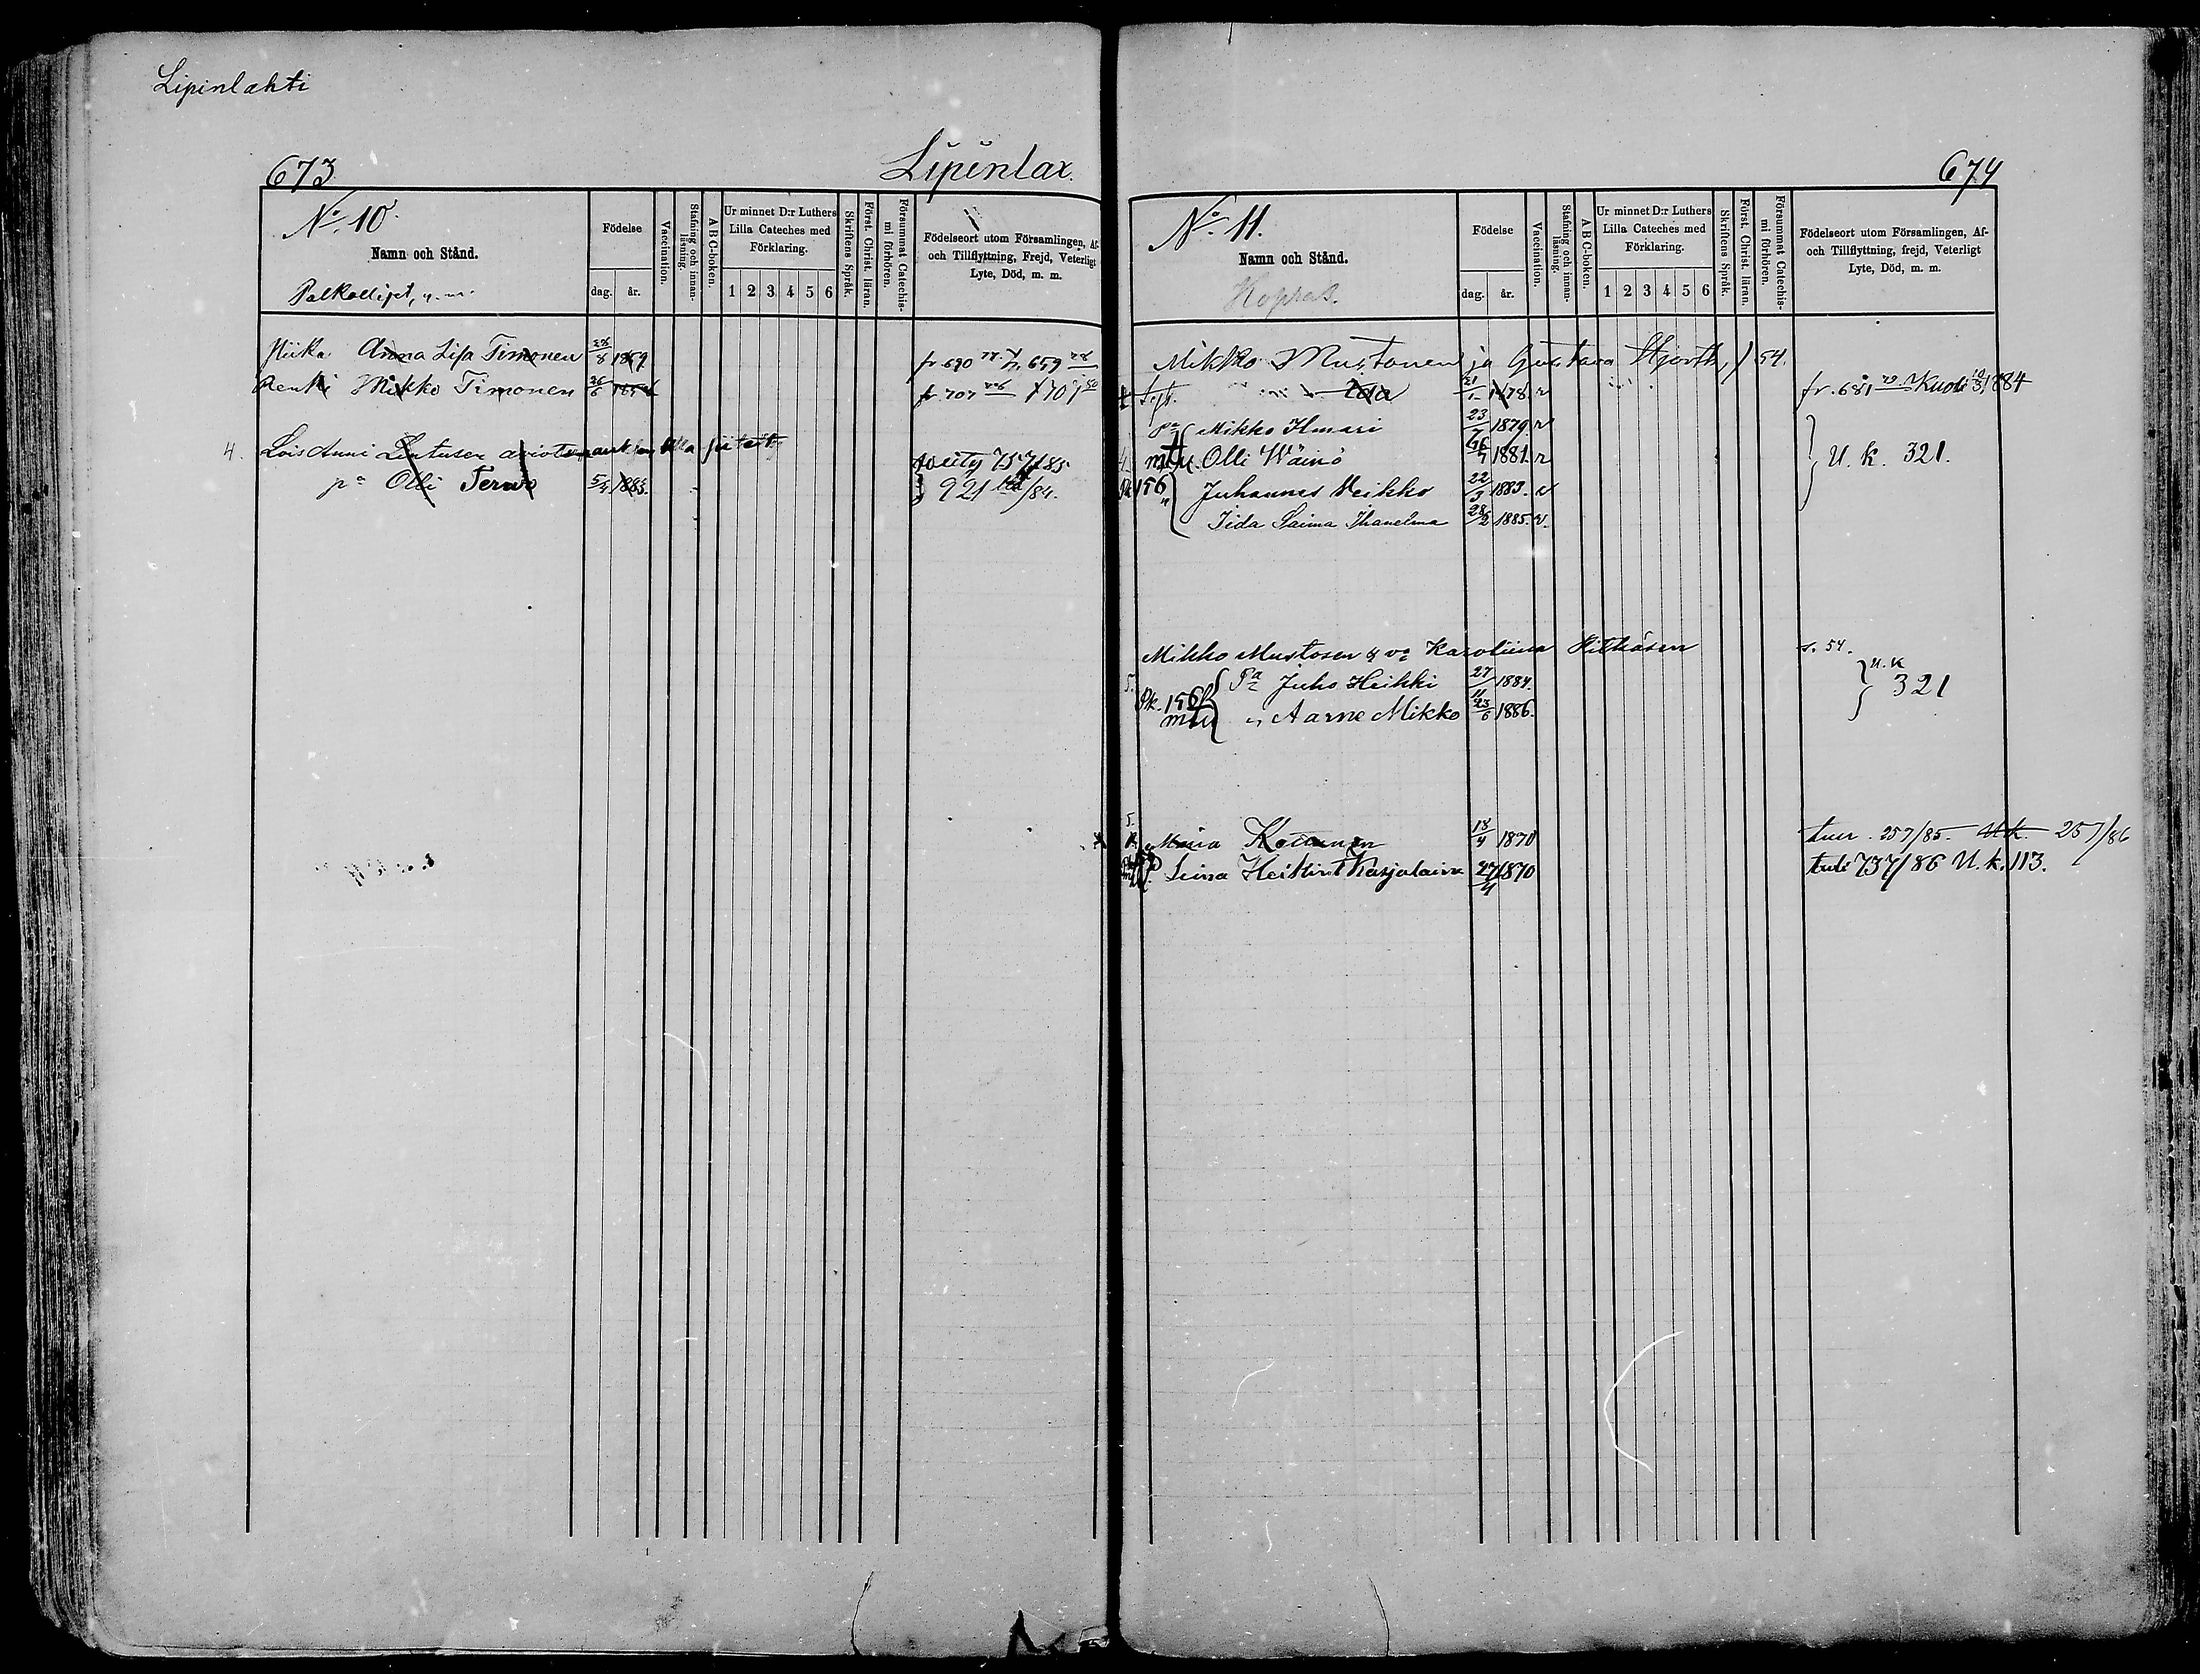 Lipinlahti
673
Lipinlax.
No. 10.
Namn och Stånd.
Palkolliset, y. m.
Födelse
dag.
år.
Vaccination.
Stafning och innanläsning.
ABC-boken.
Ur minnet D:r Luthers Lilla Cateches med Förklaring.
1 2 3 4 5 6
Skriftens Språk.
Först. Christ. läran.
Försummat Catechismi förhören.
Födelseort utom Församlingen, Af- och Tillflyttning, Frejd, Veterligt Lyte, Död, m. m.
Piika Anna Lisa Timonen 28/8 1859 fr. 690 659
Renki Mikko Timonen 26/6 fr. 707 707
4. Lois Anni Lintusen
pa Olli Tervo 5/4 1883. 757/85
921 /84.
674
No. 11.
Namn och Stånd.
Födelse
dag.
år.
Vaccination.
Stafning och innanläsning.
ABC-boken.
Ur minnet D:r Luthers Lilla Cateches med Förklaring.
1 2 3 4 5 6
Skriftens Språk.
Först. Christ. läran.
Försummat Catechismi förhören.
Födelseort utom Församlingen, Af- och Tillflyttning, frejd, Veterligt Lyte, Död, m. m.
Mikko Mustonen ja Gustava Hjorth, 54.
Ida 21/1 1878 v fr. 681 Kuoli 1884
Pa Mikko Ilmari 23/7 1879 v
Olli Wäinö 1881 v U. k. 321.
156 Juhannes Veikko 22/3 1883. v
Iida Saima Ihanelma 28/2 1885. v.
Mikko Mustosen & va Karoliina Pitkäsen s. 54.
5. Pk. 156 Pa Juho Heikki 27/11 1884. U. k 321
" Aarne Mikko 23/6 1886.
5. Miina 18/4 1870 257/85. U.k. 257/86
Liina Heikint. Karjalainen 27/4 1870 tuli 737/86 U. k. 113.